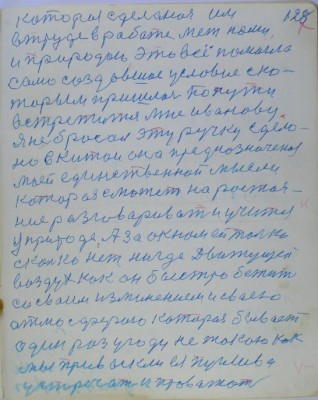 128
которая сделаная им
в труде в работе меж нами,
и природаю, это всё помогла
само создавшое условие ско-
торым пришлося попути
встретится мне иванову.
Я не бросал эту ручку, сдела-
но в китаи она предназначеная
моей единственной мысли
которая сможет на растоя-
ние разговариват и учится
у природе. А за окном ей только
сколко нет нигде
воздух как он быстро бежит
со своим изминением и своею
атмосферою которая бывает
один раз угоду не такою как
мы привыкли ея
встречат и провожат